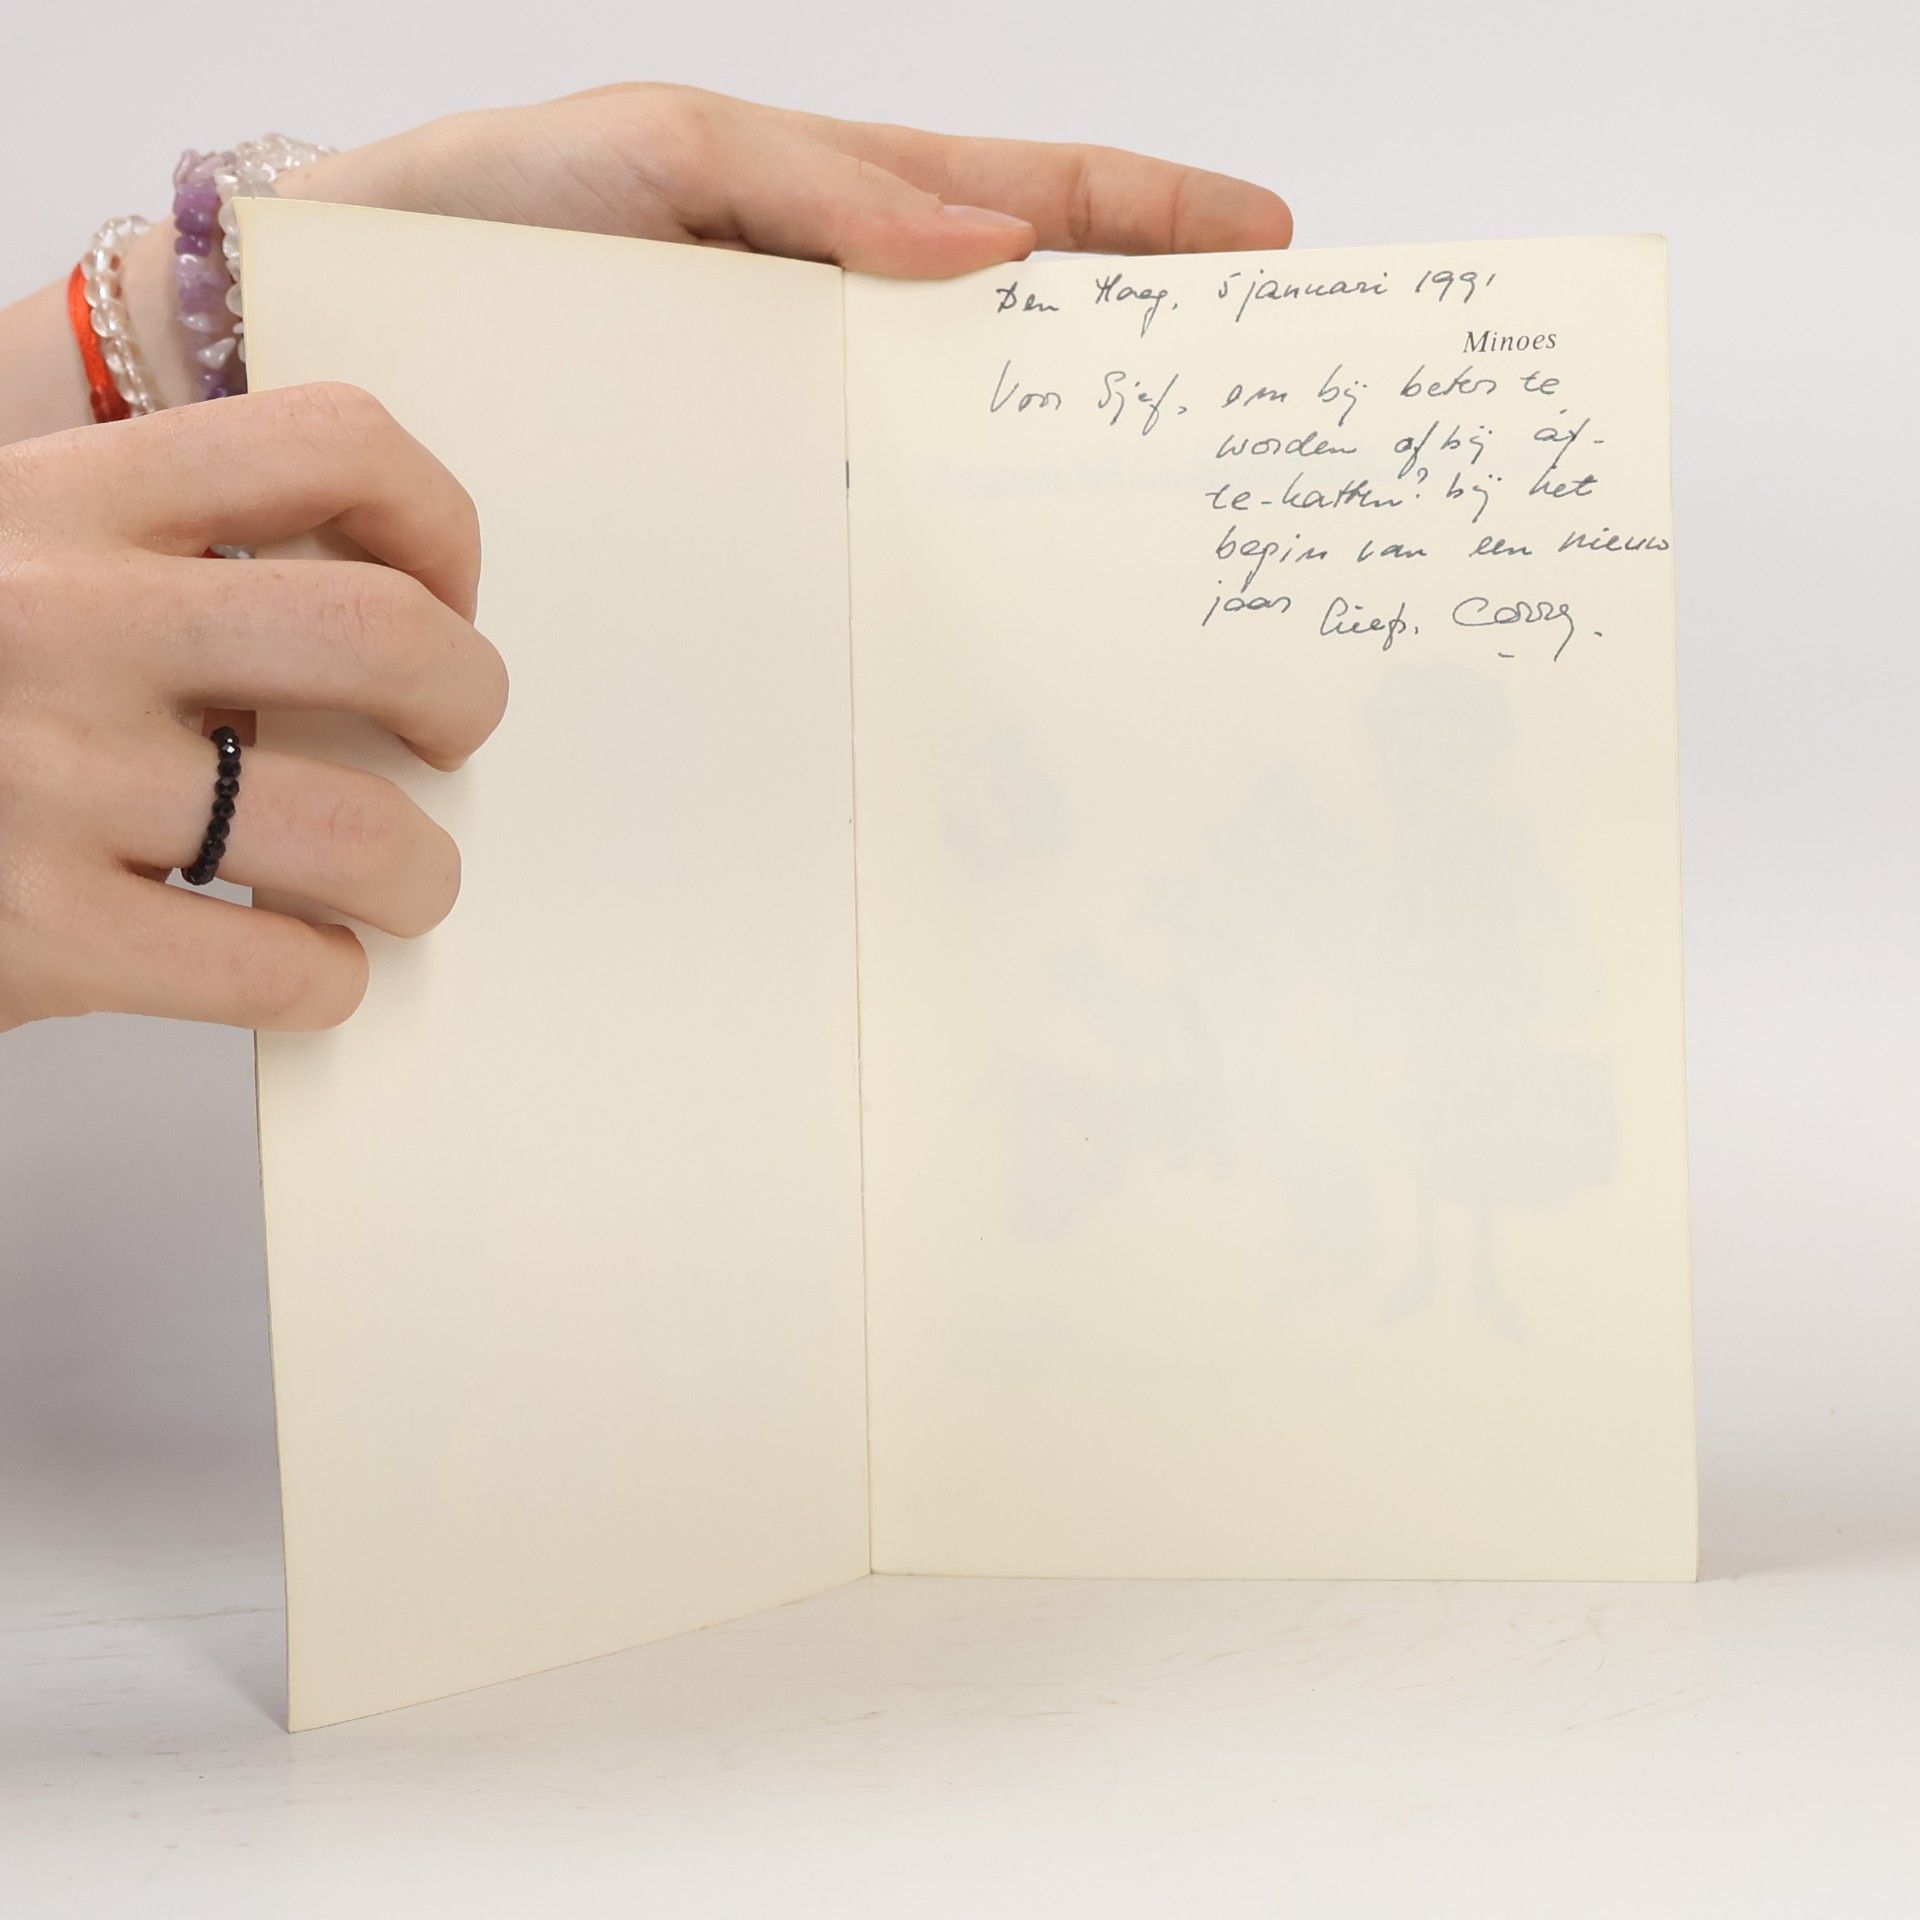 Den Haag, 5 januari 1991
Minoes
Voor Sjef, om bij beter te
worden of bij áf-
te-katten? bij het
begin van een nieuw
jaar liefs, Corry.